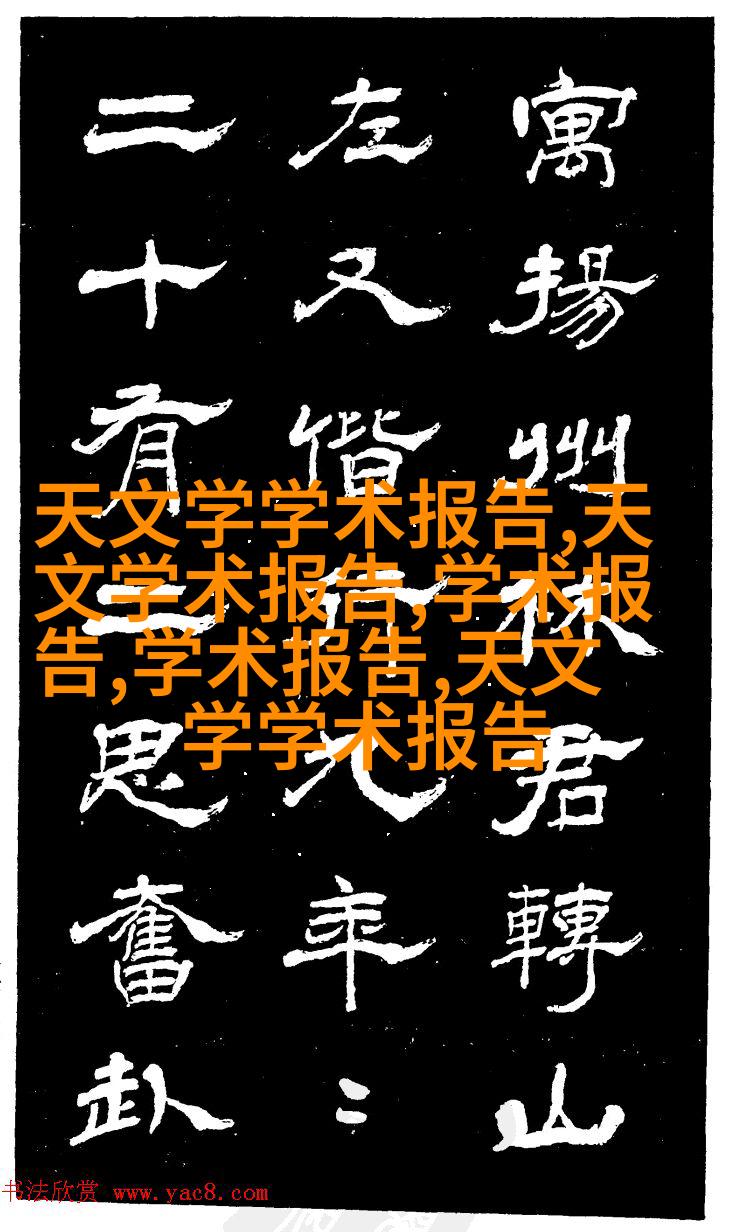 寓揚州林君轉山
左又偕行九年〻
二十有思奮赴
天文学学术报告,天
文学术报告,学术报
告,学术报告,天文
学学术报告
书法欣赏 www.yac8.com